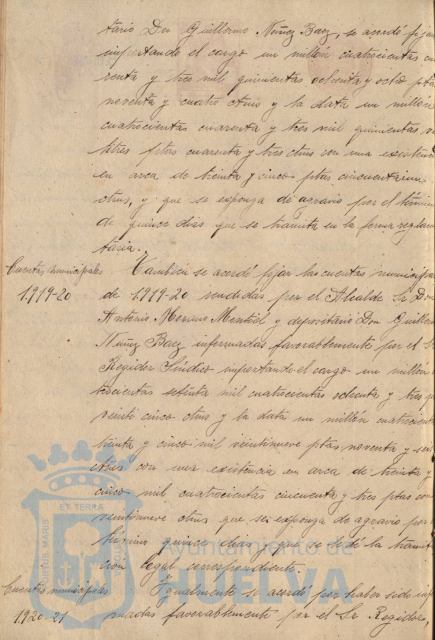 tario Don Guillermo Núñez Baez, se acordó fijar
importando el cargo un millón cuatrocientas cua
renta y tres mil quinientas ochenta y ocho ptas
noventa y cuatro ctms y la data un millón
cuatrocientas cuarenta y tres mil quinientas
ptas cuarenta y tres ctms con una existencia
en arca de treinta y cinco ptas cincuentaiun
ctms, y que se exponga de agravio por el térmi
de quince dias que se tramita en la forma reglamen
taria.
Cuentas municipales
1.919-20
Tambien se acordó fijar las cuentas municipa
de 1919-20 rendidas por el Alcalde Sr Don
Antonio Moreno Montiel y depositario Don Guiller
Núñez Baez informadas favorablemente por el Sr
Regidor Síndico importando el cargo un millón
trocientas setenta mil cuatrocientas ochenta y tres p
veinte cinco ctms y la data un millón cuatrocient
treinta y cinco mil veintinueve ptas noventa y
ctms con una existencia en arca de treinta y
cinco mil cuatrocientas cincuenta y tres ptas con
veintinueve ctms que se exponga de agravio por
término quince dias y que se dé la tramita
cion legal correspondiente.
Cuentas municipales
1920-21
Igualmente se acordó por haber sido infor
madas favorablemente por el Sr Regidor
ET TERRA
Ayuntamiento de
HUELVA